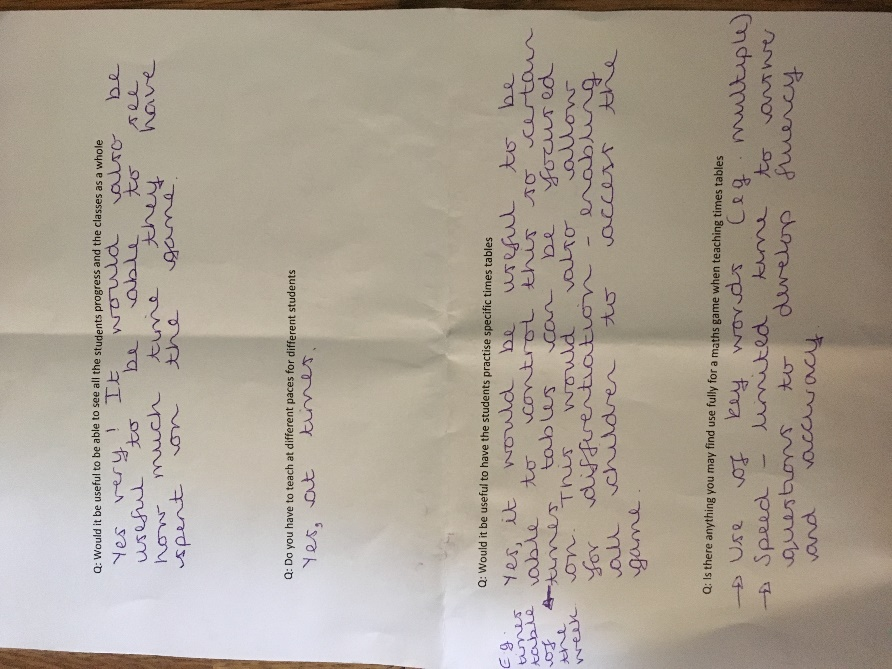 Q: Would it be useful to be able to see all the students progress and the classes as a whole
Yes very! It would also be
useful to be able to see
how much time they have
spent on the game.
Q: Do you have to teach at different paces for different students
Yes, at times.
Q: Would it be useful to have the students practise specific times tables
Yes, it would be useful to be
able to control this so certain
times tables can be focused
on. This would also allow
for differentiation - enabling
all children to access the
game.
E.g.
times
table
of
the
week
Q: Is there anything you may find use fully for a maths game when teaching times tables
→ Use of key words (eg. multiple)
→ Speed - limited time to answe
questions to develop fluency
and accuracy